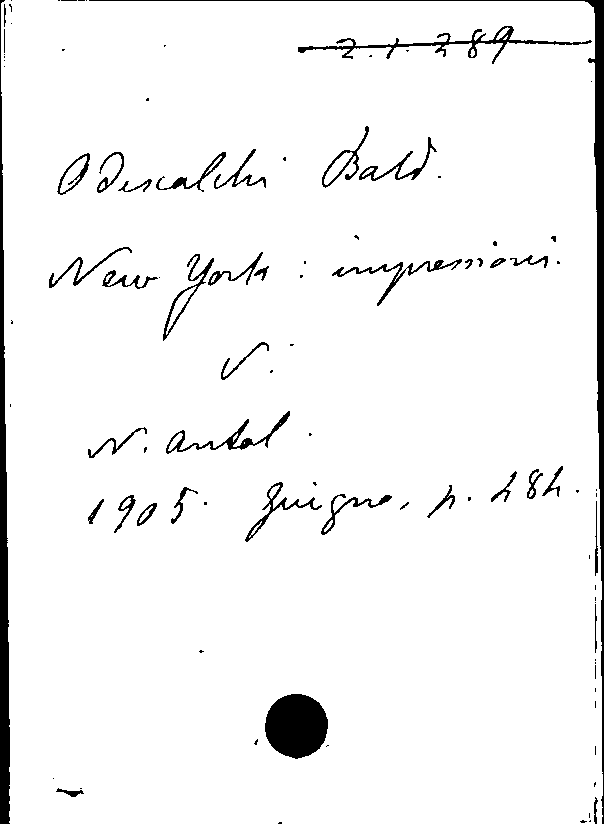 2.1.289
Odescalchi Bald.
New York : impressioni.
V.
N. Antol.
1905. Giugno, p. 484.